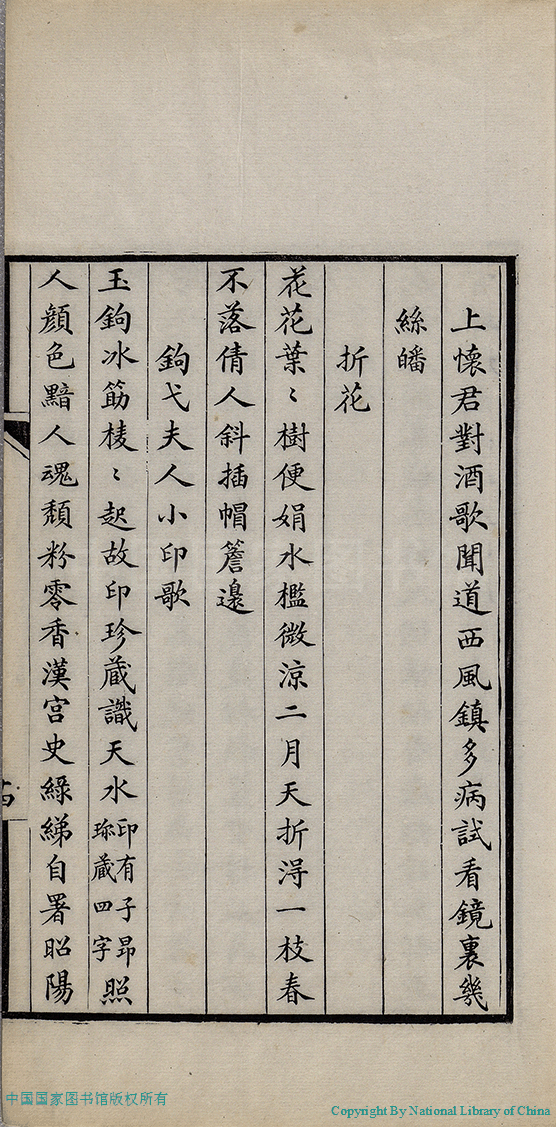 上懷君對酒歌聞道西風鎮多病試看鏡裏幾
絲皤
折花
花花葉〻樹便娟水檻微涼二月天折淂一枝春
不落倩人斜插帽簷邉
鉤弋夫人小印歌
玉鉤冰筋棱〻起故印珍蔵識天水印有子昂珎蔵四字照
人顔色黯人魂頹粉零香漢宮史綠綈自署昭陽
中国国家图书馆版权所有
Copyright By National Library of China